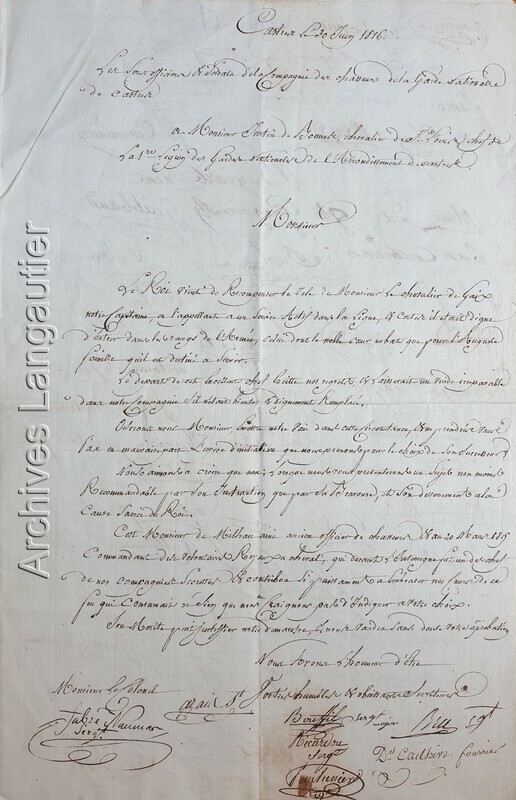 Castres Le 30 Juin 1816
Les Sous officiers & Soldats de la Compagnie des chasseurs de la Garde Nationale
de Castres
a Monsieur de Bonne, chevalier de St. Louis, chef de
La 1re Légion des Gardes Nationales de L'Arrondissement de Castres.
Monsieur
Le Roi vient de Recompenser le Zele de Monsieur Le chevalier de Gaix
notre Capitaine, en l'appellant a un Service Actif dans la Ligne, & certes il etait digne
d'entrer dans les rangs de l'Armée, celui dont le noble cœur ne bat que pour L'Auguste
famille qu'il est destiné a Servir.
Le depart de cet Excellent chef Excite nos regrets, & Laisserait un vuide irreparable
dans notre Compagnie S'il n'etait bientot & dignement Remplacé.
Oserons nous Monsieur Emettre notre Vœu dans cette circonstance, & ne prendrés vous
pas en mauvaise part L'espece d'initiative que nous prenons pour le choix de Son Successeur?
Nous aimons a croire que non, Lorsque nous vous presenterons un Sujet non moins
Recommandable par Son Instruction que par Sa Bravoure, et Son devouement a la
Cause Sacrée du Roi.
C'est Monsieur de Milhau ainé ancien officier de chasseurs & au 20 Mars 1815
Commandant des Volontaires Royaux a cheval, qui durant fut un des chefs
de nos compagnies Secretes & contribua Si puissamment a embraser nos cœurs de ce
feu qui Consumait le Sien que nous ne Craignons pas de L'Indiquer a Votre choix.
Son Merite peut justiffier notre demarche, & nous Vaudra Sans doute Votre approbation
Nous avons L'honneur d'Etre
Monsieur Le Colonel
Vos très humbles & obeissants Serviteurs
Fabre
Sergt
Naumas
Boussil sergt major
Ricardou
Sergt
Sgt
Ds Cauhin fourrier
Archives Langautier